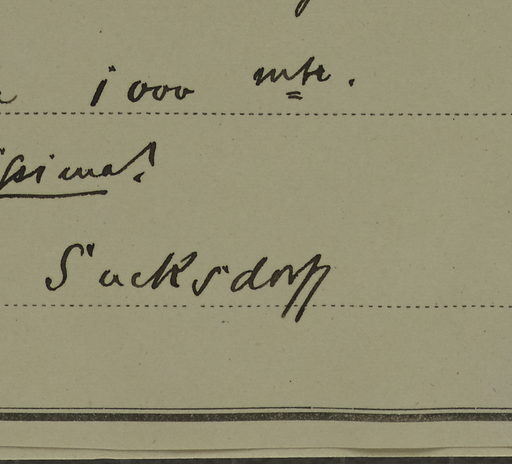 1000 mtr.
issima!
Sucksdorff